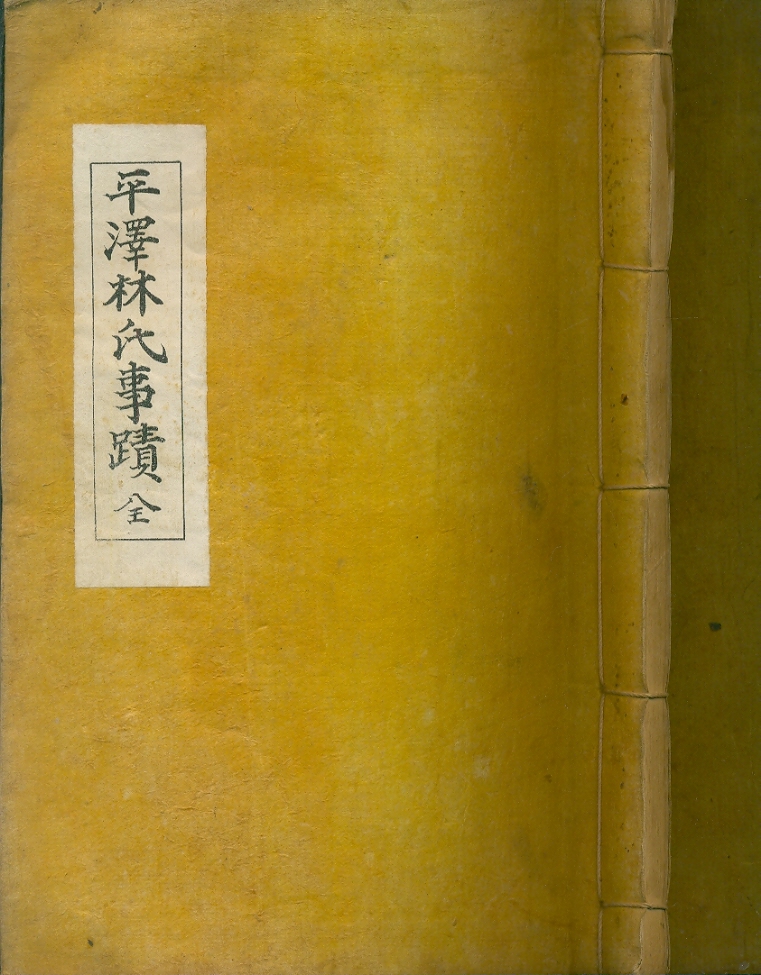 平澤林氏事蹟 全